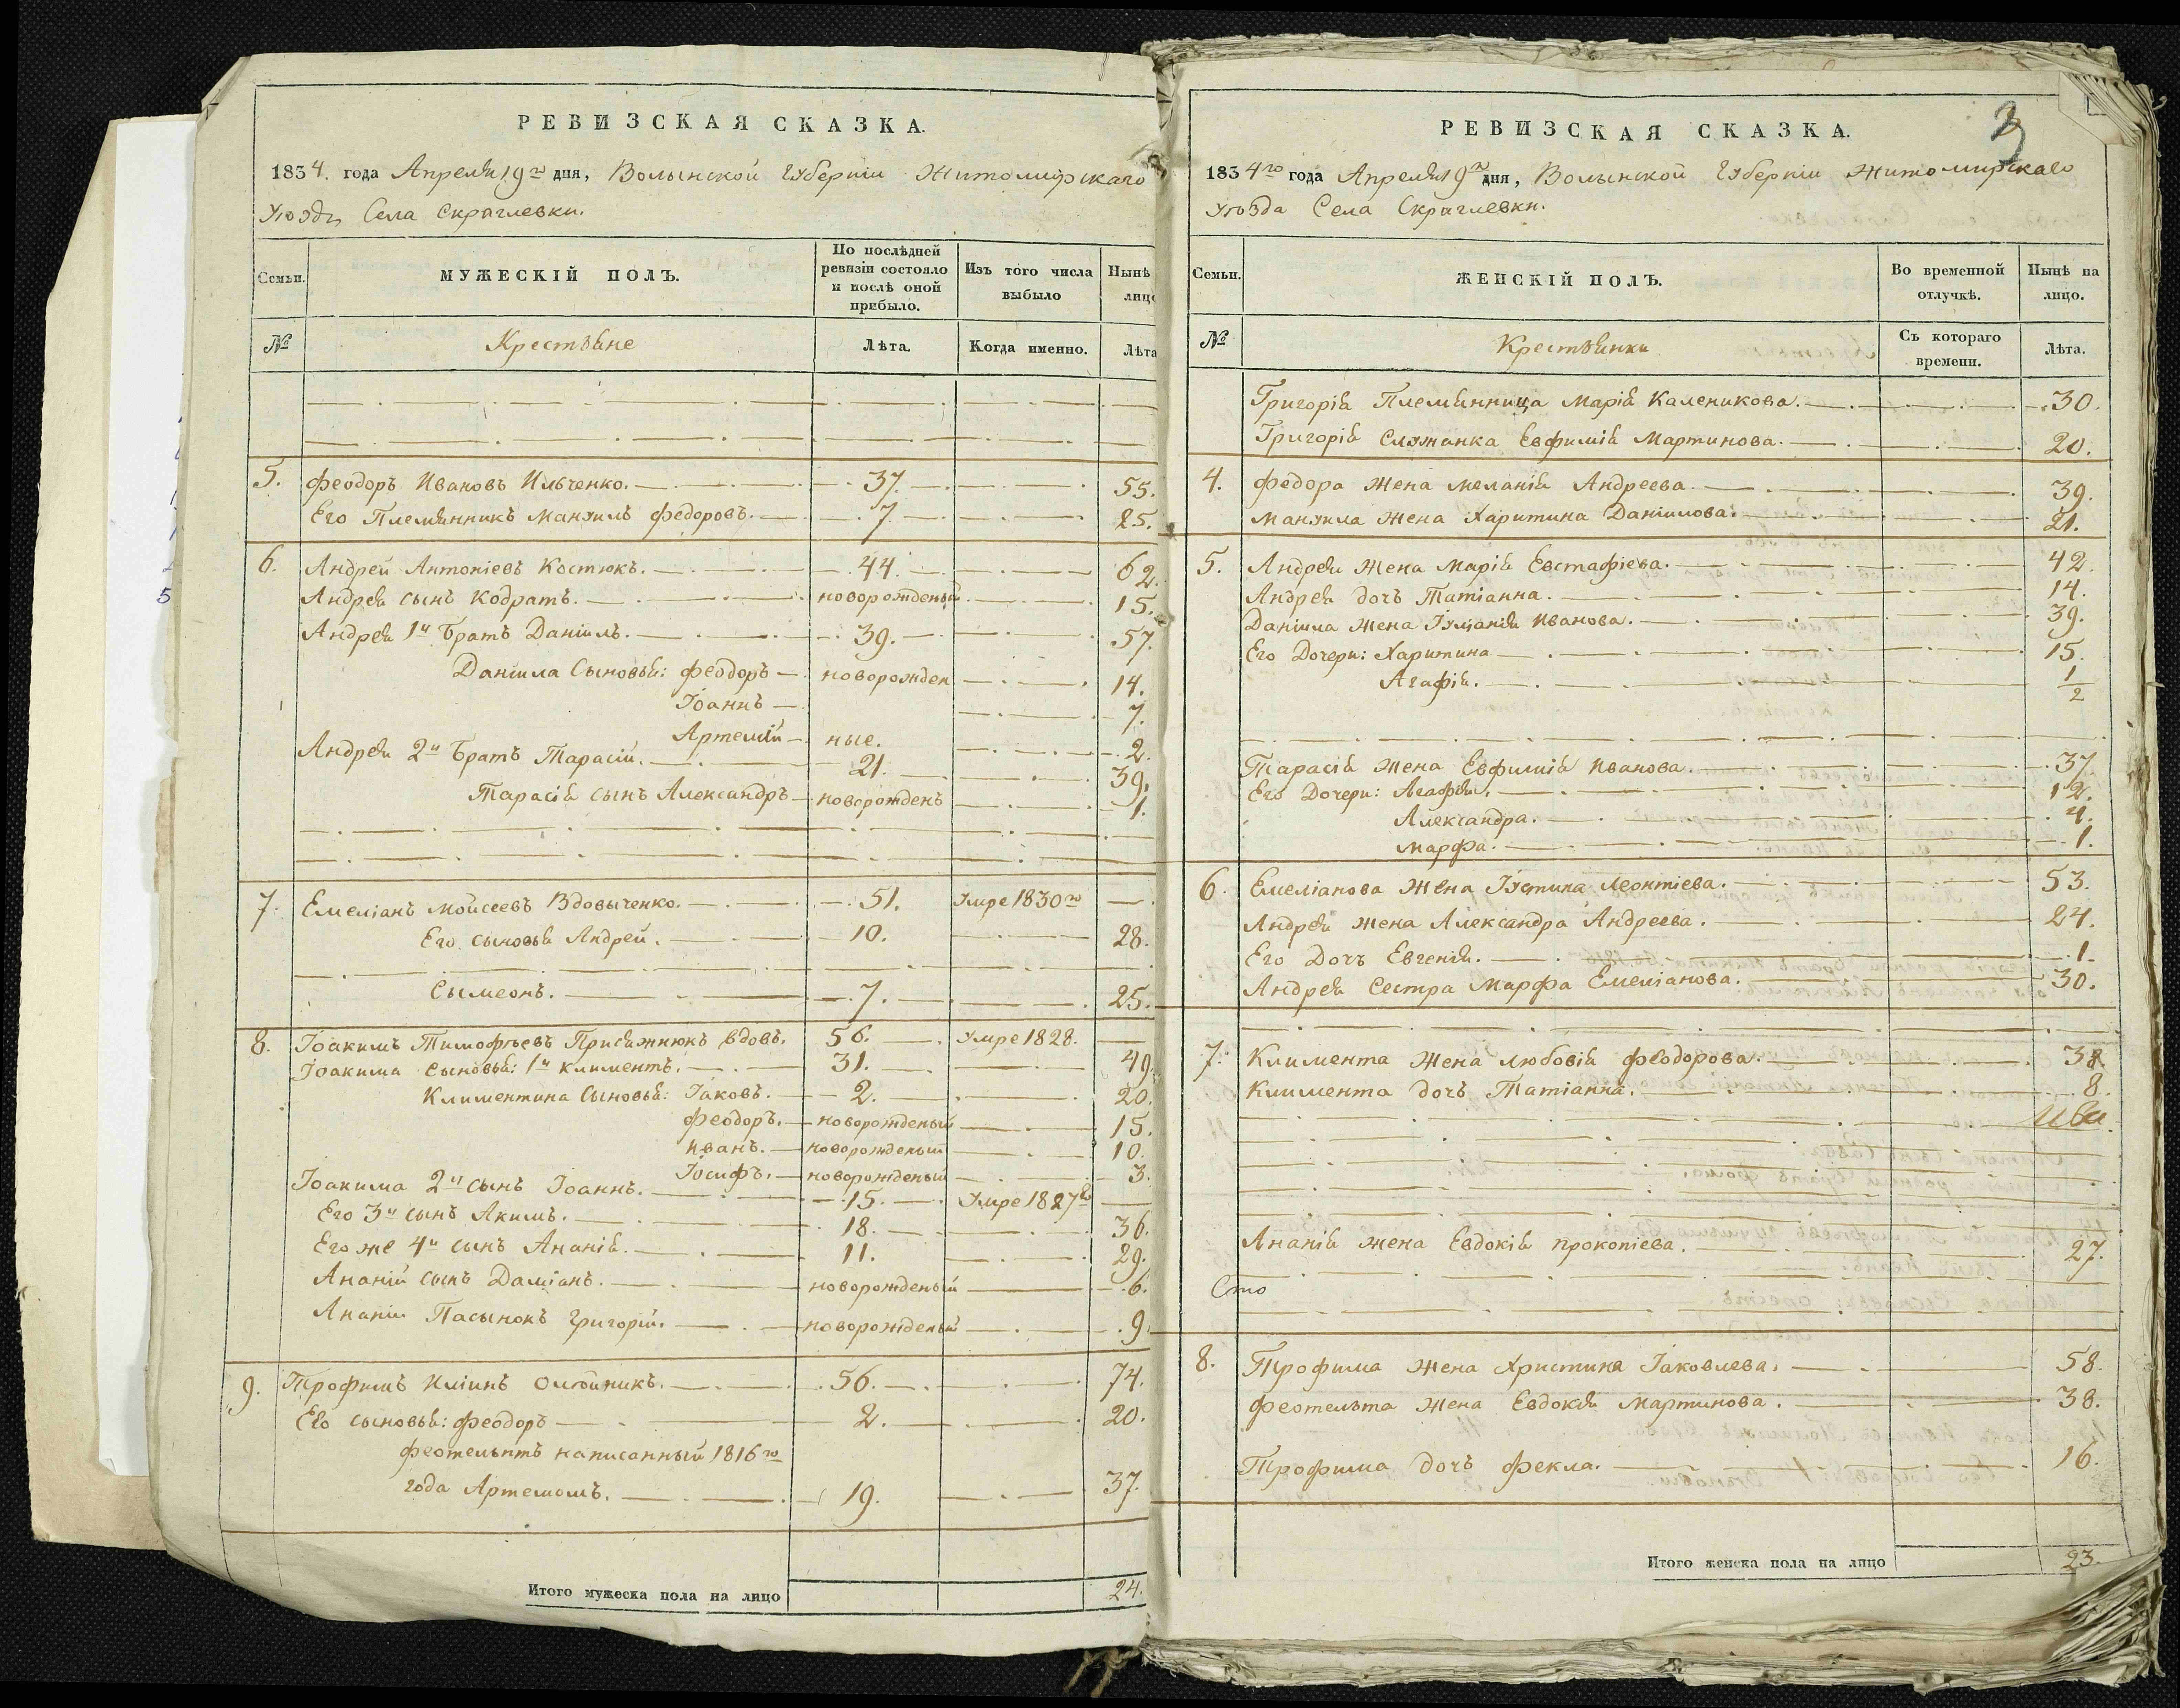 РЕВИЗСКАЯ СКАЗКА.
1834. года Апреля 19го дня, Волынской Губерніи Житомирскаго
Уѣзда Села Скраглевки.
Семьи.
МУЖЕСКІЙ ПОЛЪ.
По послѣдней ревизіи состояло и послѣ оной прибыло.
Изъ того числа выбыло
Нынѣ лицо
№
Крестьяне
Лѣта.
Когда именно.
Лѣта
5. Феодоръ Ивановъ Ильченко. 37. 55.
Его Племянникъ Мануилъ Федоровъ. 7. 25.
6. Андрей Антоніевъ Костюкъ. 44. 62.
Андрея сынъ Кодратъ. новорожденый 15.
Андрея 1й Братъ Даніилъ. 39. 57.
Даніила Сыновья: Феодоръ новорожден 14.
Іоаннъ 7.
Артемій ные. 2.
Андрея 2й Братъ Тарасій. 21. 39.
Тарасія сынъ Александръ новорожденъ 1.
7. Емеліанъ Моисеевъ Вдовыченко. 51. Умре 1830го
Его сыновья Андрей. 10. 28.
Сымеонъ. 7. 25.
8. Іоакимъ Тимофѣевъ Присяжнюкъ вдовъ. 56. Умре 1828.
Іоакима сыновья: 1й Климентъ. 31. 49.
Климентина Сыновья: Іаковъ. 2. 20.
Феодоръ. новорожденый 15.
Иванъ. новорожденый 10.
Іосифъ. новорожденый 3.
Іоакима 2й сынъ Іоаннъ. 15. Умре 1827го
Его 3й сынъ Акимъ. 18. 36.
Его же 4й сынъ Ананія. 11. 29.
Ананіи сынъ Даміанъ. новорожденый 6.
Ананіи Пасынокъ Григорій. новорожденый 9.
9. Трофимъ Иліинъ Олійникъ. 56. 74.
Его сыновья: Феодоръ 2. 20.
Феотемптъ написанный 1816го
года Артемомъ. 19. 37.
Итого мужеска пола на лицо 24.
3
РЕВИЗСКАЯ СКАЗКА.
1834го года Апреля 19го дня, Волынской Губерніи Житомирскаго
Уѣзда Села Скраглевки.
Семьи.
ЖЕНСКІЙ ПОЛЪ.
Во временной отлучкѣ.
Нынѣ на лицо.
№
Крестьянки
Съ котораго времени.
Лѣта.
Григорія Племянница Марія Каленикова. 30.
Григорія Служанка Евфимія Мартинова. 20.
4. Федора Жена Меланія Андреева. 39.
Мануила Жена Харитина Даніилова. 21.
5. Андрея Жена Марія Евстафіева. 42.
Андрея дочь Татіанна. 14.
Даніила Жена Іуліанія Иванова. 39.
Его Дочери: Харитина 15.
Агафія. 1/2
Тарасія Жена Евфимія Иванова. 37.
Его Дочери: Агафія. 12.
Александра. 4.
Марфа. 1.
6. Емеліанова Жена Іустина Леонтіева. 53.
Андрея Жена Александра Андреева. 24.
Его Дочь Евгенія. 1.
Андрея Сестра Марфа Емеліанова. 30.
7. Климента Жена Любовія Феодорова. 38.
Климента дочь Татіанна. 8.
Ананія Жена Евдокія Прокопіева. 27.
Сто
8. Трофима Жена Христина Іаковлева. 58.
Феотемпта Жена Евдокія Мартинова. 38.
Трофима дочь Фекла. 16.
Итого женска пола на лицо 23.